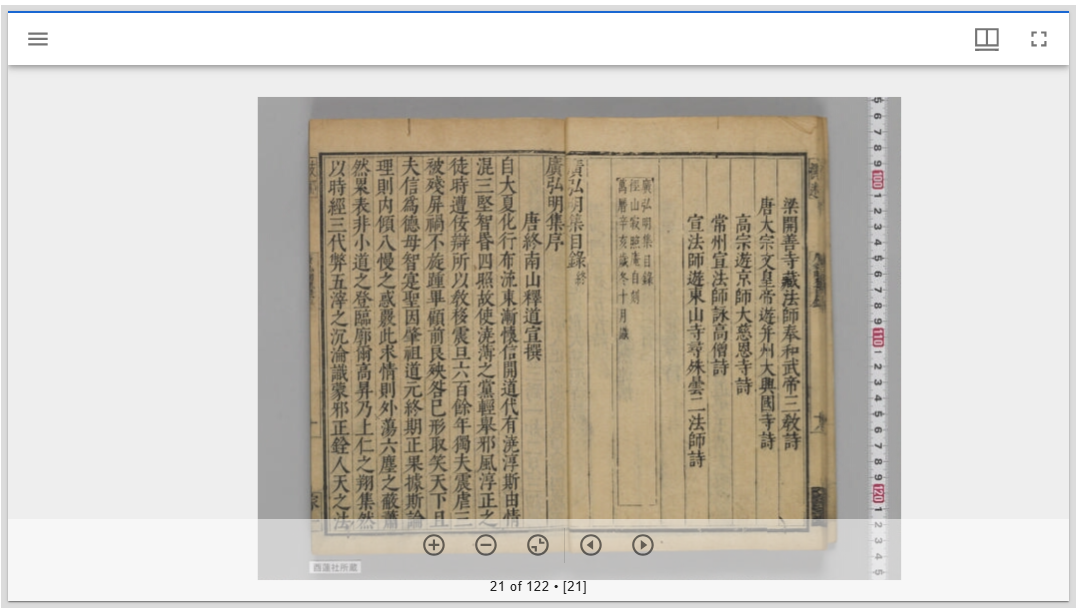 梁開善寺藏法師奉和武帝三教詩
唐太宗文皇帝遊并州大興國寺詩
高宗遊京師大慈恩寺詩
常州宣法師詠高僧詩
宣法師遊東山寺尋殊曇二法師詩
廣弘明集目錄
徑山寂照庵自刻
萬曆辛亥歲冬十月識
廣弘明集目錄終
廣弘明集序
唐終南山釋道宣撰
自大夏化行布流東漸懷信開道代有澆淳斯由情
混三堅智昏四照故使澆薄之黨輕舉邪風淳正之
徒時遭佞辯所以教移震旦六百餘年獨夫震虐三
被殘屏禍不旋踵畢顧前良殃咎已形取笑天下且
夫信為德母智寔聖因肇祖道元終期正果據斯論
理則內傾八慢之惑覈此求情則外蕩六塵之蔽蕭
然累表非小道之登臨廓爾高昇乃上仁之翔集然
以時經三代弊五滓之沉淪識蒙邪正銓人天之法
5 6 7 8 9 100 1 2 3 4 5 6 7 8 9 110 1 2 3 4 5 6 7 8 9 120 1 2 3 4 5
西蓮社所藏
21 of 122 • [21]